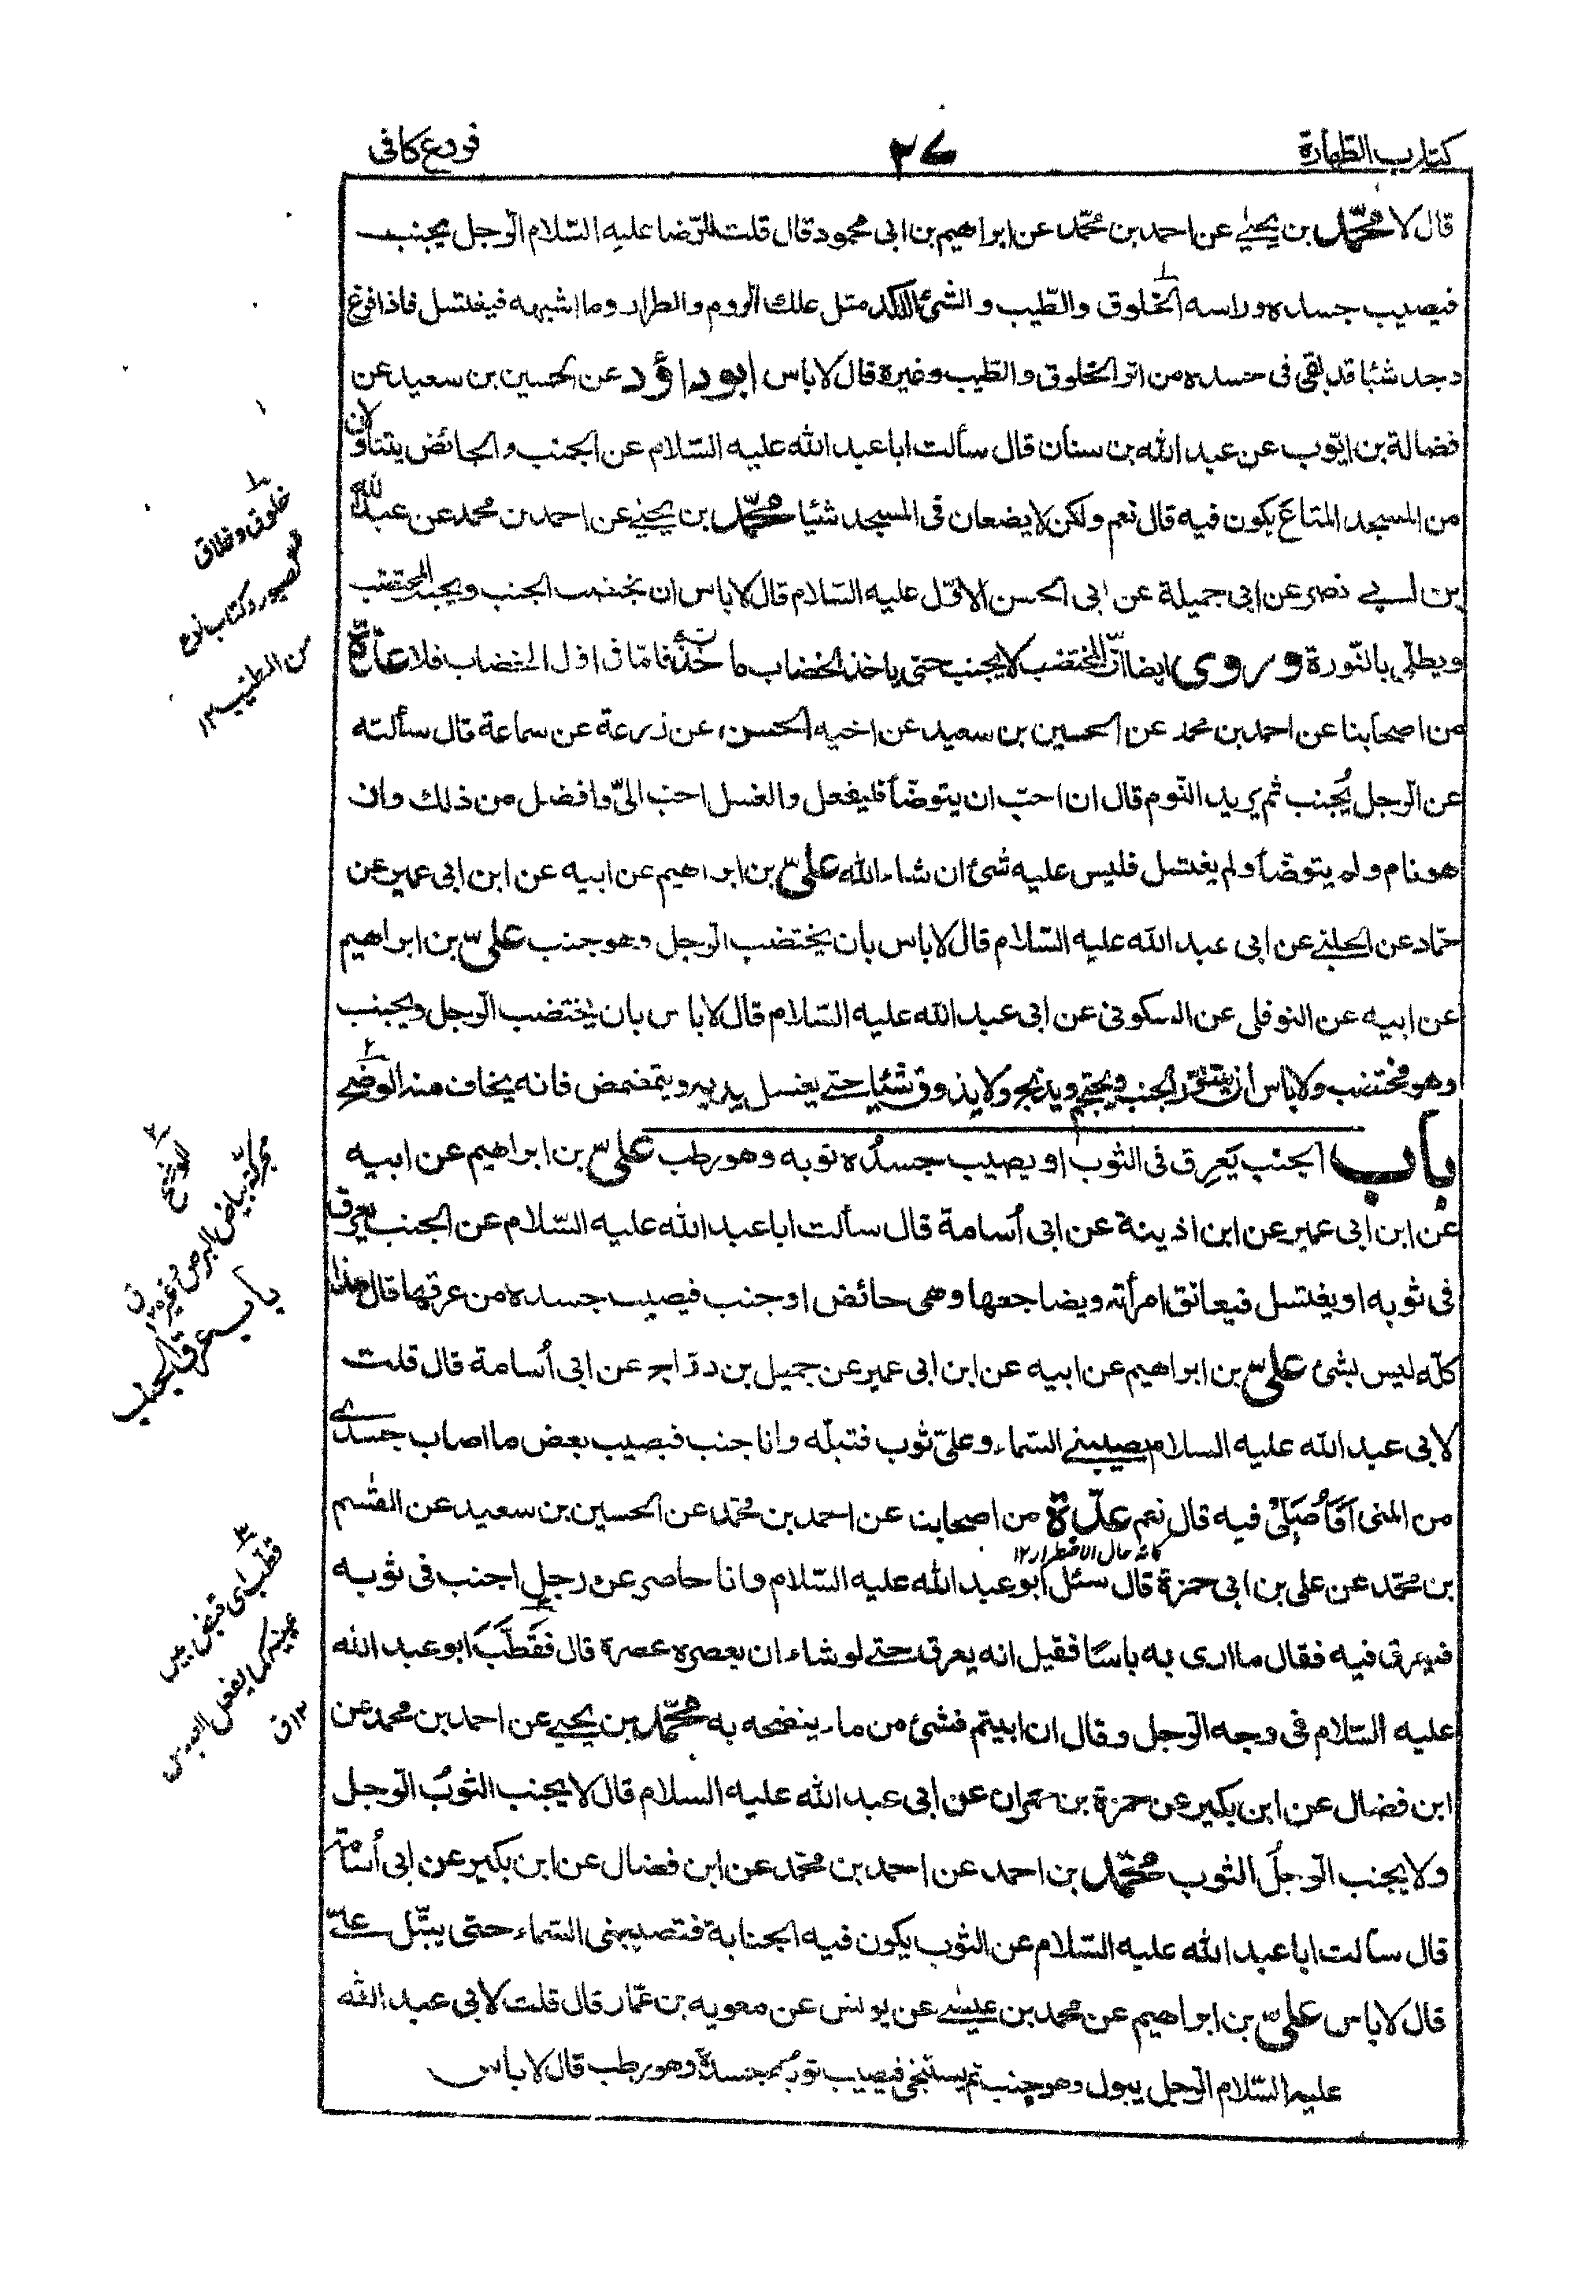 كتاب الطهارة
٣٧
فروع كافى
قال لا محمّد بن يحيى عن احمد بن محمّد عن ابراهيم بن ابى محمود قال قلت للرّضا عليه السّلام الرّجل يجنب
فيصيب جسده وراسه الخلوق والطّيب والشئ اللكد مثل علك الروم والطرار وما اشبهه فيغتسل فاذا فرغ
وجد شيئا قد بقى فى جسده من اثر الخلوق والطّيب وغيره قال لا باس ابو داؤد عن الحسين بن سعيد عن
فضالة بن ايّوب عن عبد الله بن سنان قال سألت ابا عبد الله عليه السّلام عن الجنب والحائض يتناولان
من المسجد المتاع يكون فيه قال نعم ولكن لا يضعان فى المسجد شيئا محمّد بن يحيى عن احمد بن محمد عن عبد الله
بن ابى نصر عن ابى جميلة عن ابى الحسن الاوّل عليه السّلام قال لا باس ان يختضب الجنب ويجنب المختضب
ويطلى بالنّورة وروى ايضا انّ المختضب لا يجنب حتى ياخذ الخضاب ما خذه فامّا فى اوّل الخضاب فلا عدّة
من اصحابنا عن احمد بن محمد عن الحسين بن سعيد عن اخيه الحسن عن زرعة عن سماعة قال سألته
عن الرّجل يُجنب ثم يريد النّوم قال ان احبّ ان يتوضّأ فليفعل والغسل احبّ الىّ وافضل من ذلك وان
هو نام ولم يتوضّأ ولم يغتسل فليس عليه شئ ان شاء الله علىّ بن ابراهيم عن ابيه عن ابن ابى عمير عن
حمّاد عن الحلبى عن ابى عبد الله عليه السّلام قال لا باس بان يختضب الرّجل وهو جنب علىّ بن ابراهيم
عن ابيه عن النوفلى عن السكونى عن ابى عبد الله عليه السّلام قال لا باس بان يختضب الرّجل ويجنب
وهو مختضب ولا باس ان يتنوّر الجنب ويحتجم ويذبح ولا يذوق شيئا حتى يغسل يديه ويتمضمض فانه يخاف منه الوضح
باب الجنب يَعرق فى الثوب او يصيب جسدُه ثوبه وهو رطب علىّ بن ابراهيم عن ابيه
عن ابن ابى عمير عن ابن اذينة عن ابى أسامة قال سألت ابا عبد الله عليه السّلام عن الجنب يعرق
فى ثوبه او يغتسل فيعانق امرأته ويضاجعها وهى حائض او جنب فيصيب جسده من عرقها قال هذا
كلّه ليس بشئ علىّ بن ابراهيم عن ابيه عن ابن ابى عمير عن جميل بن درّاج عن ابى أسامة قال قلت
لابى عبد الله عليه السلام يصيبنى السّماء وعلىّ ثوب فتبلّه وانا جنب فيصيب بعض ما اصاب جسدى
من المنى أفأُصَلّى فيه قال نعم عدّة من اصحابنا عن احمد بن محمّد عن الحسين بن سعيد عن القٰسم
كانه حال الاضطرار ١٢
بن محمّد عن على بن ابى حمزة قال سئل ابو عبد الله عليه السّلام وانا حاضر عن رجل اجنب فى ثوبه
فيعرق فيه فقال ما ارى به باسًا فقيل انه يعرق حتى لو شاء ان يعصره عصرة قال فقَطَّبَ ابو عبد الله
عليه السّلام فى وجه الرّجل وقال ان ابيتم فشئ من ماء ينضحه به محمّد بن يحيى عن احمد بن محمد عن
ابن فضال عن ابن بكير عن حمزة بن حمران عن ابى عبد الله عليه السلام قال لا يجنب الثوبُ الرّجل
ولا يجنب الرّجلُ الثوب محمّد بن احمد عن احمد بن محمّد عن ابن فضال عن ابن بكير عن ابى أسامة
قال سألت ابا عبد الله عليه السّلام عن الثوب يكون فيه الجنابة فتصيبنى السّماء حتى يبتّل علىّ
قال لا باس علىّ بن ابراهيم عن محمد بن عيسى عن يونس عن معويه بن عمّار قال قلت لابى عبد الله
عليه السّلام الرّجل يبول وهو جنب ثم يستنجى فيصيب ثوبُه جسدَه وهو رطب قال لا باس
١
خلوق وخلاق
كصبور وكتاب نوع
من الطيب ١٢
٢
الوضح
محركة بياض البرص وغيره ١٢ ق
باب عرق الجنب
٣
قطّب اى قبض بين
عينيه كما يفعل العبوس
١٢ ق